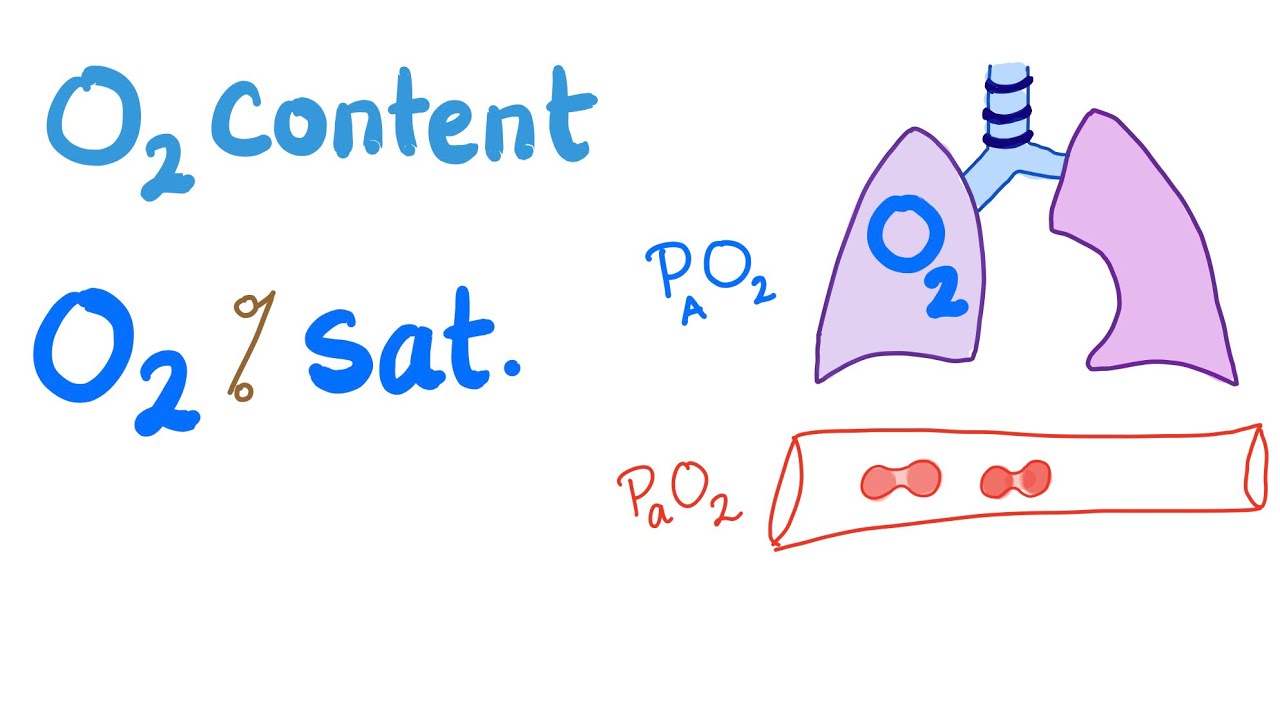 O₂ Content
O₂ % sat.
PAO₂
O₂
PaO₂